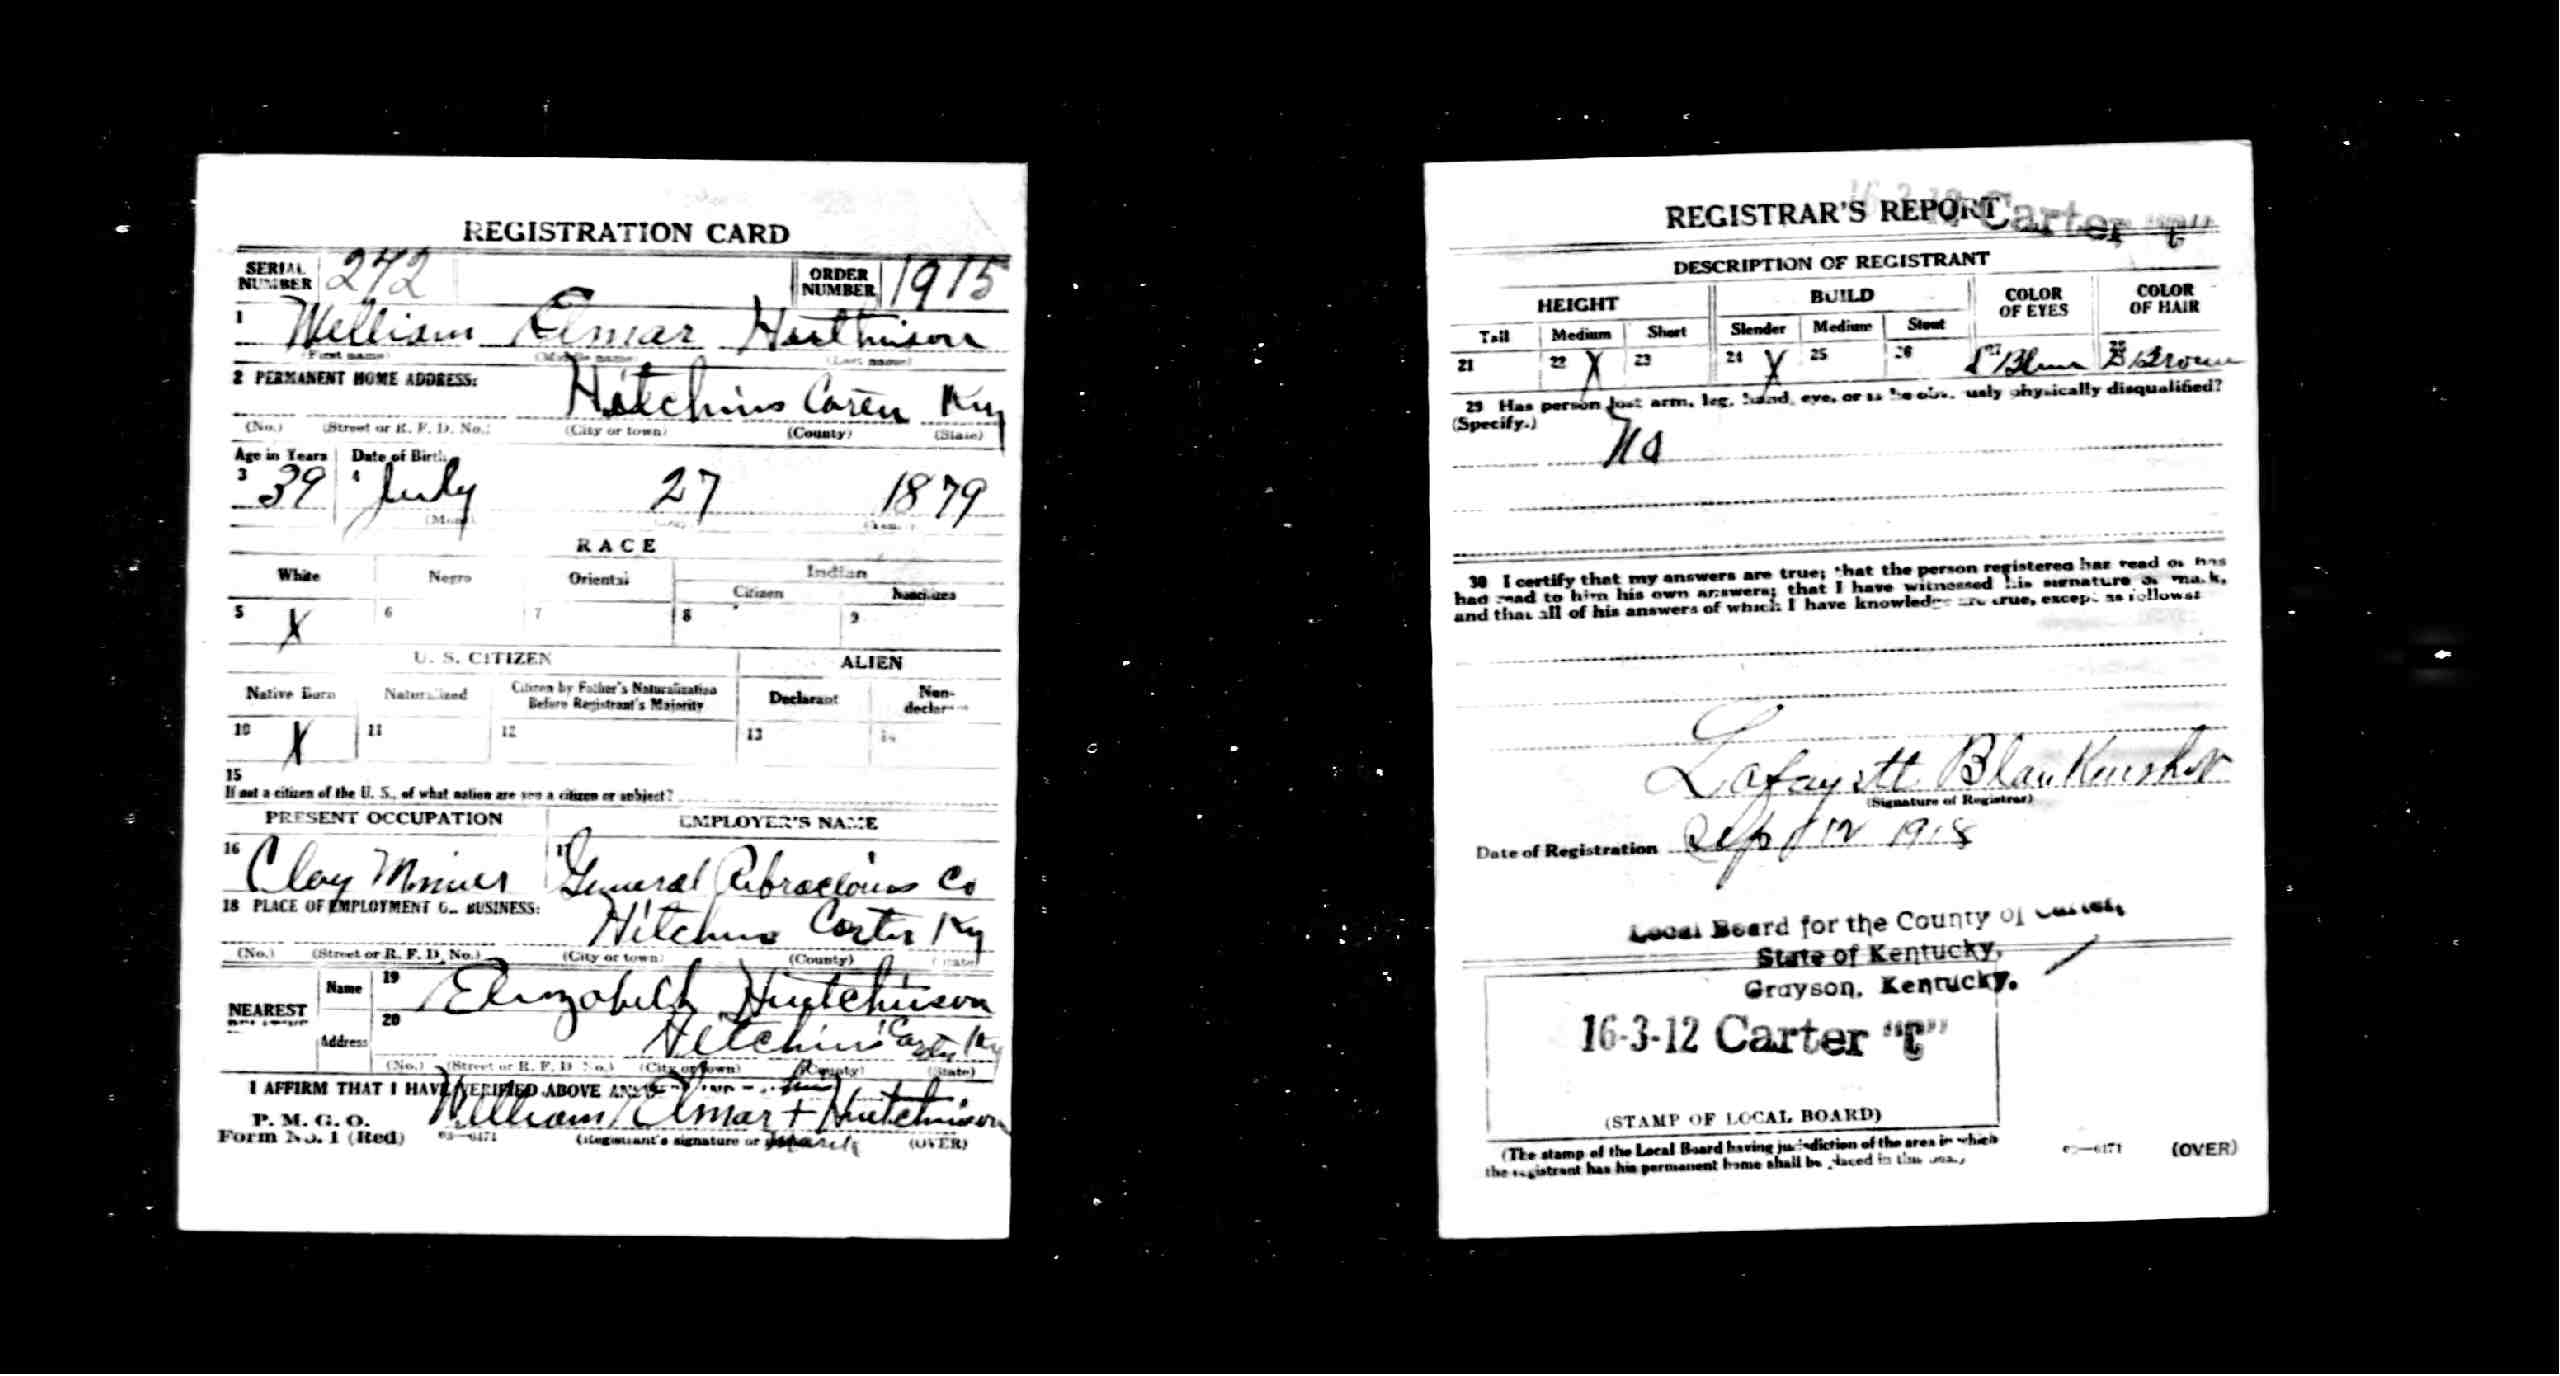 REGISTRATION CARD
SERIAL NUMBER 272 ORDER NUMBER 1915
1 William Elmar Hutchinson
(First name) (Middle name) (Last name)
2 PERMANENT HOME ADDRESS:
Hitchins Carter Ky
(No.) (Street or R. F. D. No.) (City or town) (County) (State)
Age in Years Date of Birth
3 39 4 July 27 1879
RACE
White Negro Oriental Indian
Citizen Noncitizen
5 X 6 7 8 9
U. S. CITIZEN ALIEN
Native Born Naturalized Citizen by Father's Naturalization Before Registrant's Majority Declarant Non-declarant
10 X 11 12 13 14
15
If not a citizen of the U. S., of what nation are you a citizen or subject?
PRESENT OCCUPATION EMPLOYER'S NAME
16 Clay Miner 17 General Co
18 PLACE OF EMPLOYMENT OR BUSINESS:
Hitchins Carter Ky
(No.) (Street or R. F. D. No.) (City or town) (County) (State)
NEAREST Name 19 Elizabeth Hutchinson
Address 20 Hitchins Carter Ky
(No.) (Street or R. F. D. No.) (City or town) (County) (State)
I AFFIRM THAT I HAVE VERIFIED ABOVE his
P. M. G. O. William Elmar + Hutchinson
Form No. 1 (Red) 03—6171 (Registrant's signature or mark (OVER)
16-3-12 Carter "C"
REGISTRAR'S REPORT
DESCRIPTION OF REGISTRANT
HEIGHT BUILD COLOR OF EYES COLOR OF HAIR
Tall Medium Short Slender Medium Stout
21 22 X 23 24 X 25 26 27 Blue 28 Brown
29 Has person lost arm, leg, hand, eye, or is he obviously physically disqualified?
(Specify.) No
30 I certify that my answers are true; that the person registered has read or has
had read to him his own answers; that I have witnessed his signature or mark,
and that all of his answers of which I have knowledge are true, except as follows:
Lafayett Blankenship
(Signature of Registrar)
Date of Registration Sept 12 1918
Local Board for the County of Carter,
State of Kentucky,
Grayson, Kentucky.
16-3-12 Carter "C"
(STAMP OF LOCAL BOARD)
(The stamp of the Local Board having jurisdiction of the area in which
the registrant has his permanent home shall be placed in this box.)
03—6171 (OVER)